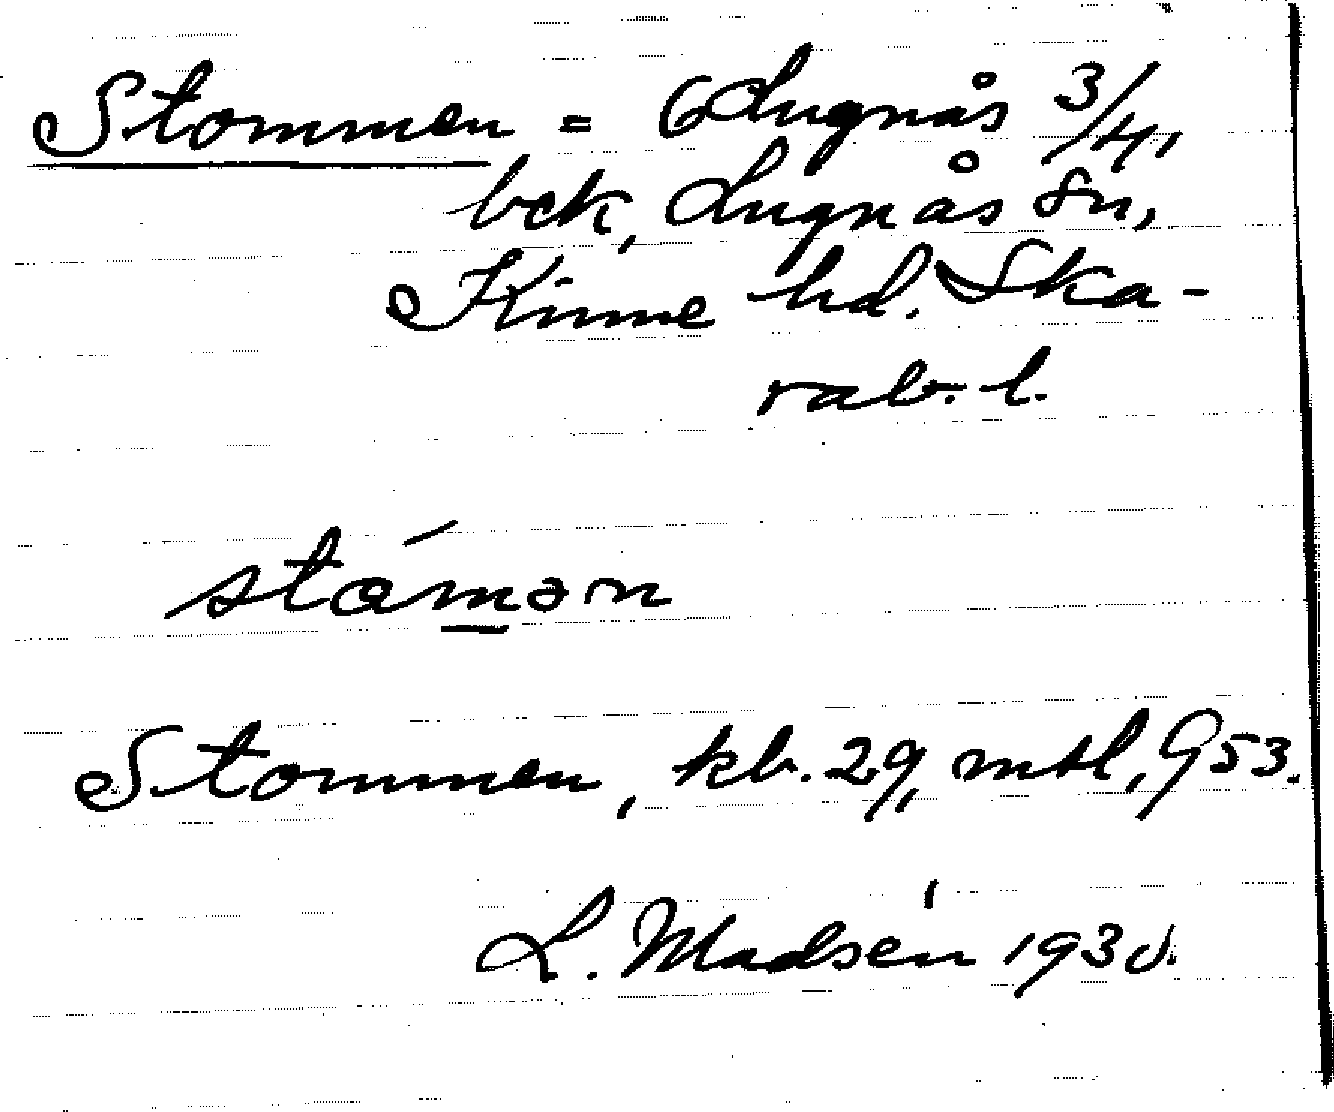 Stommen = 6 Lugnås 3/4,
bck, Lugnås sn,
Kinne hd. Ska-
rab. l.
stómən
Stommen, kb. 29, mtl, 953.
L. Madsén 1930.